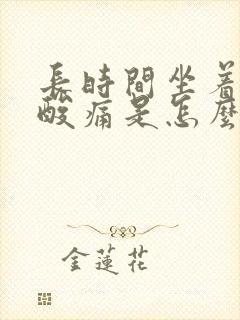 長時間坐着
酸痛是怎麼
金蓮花